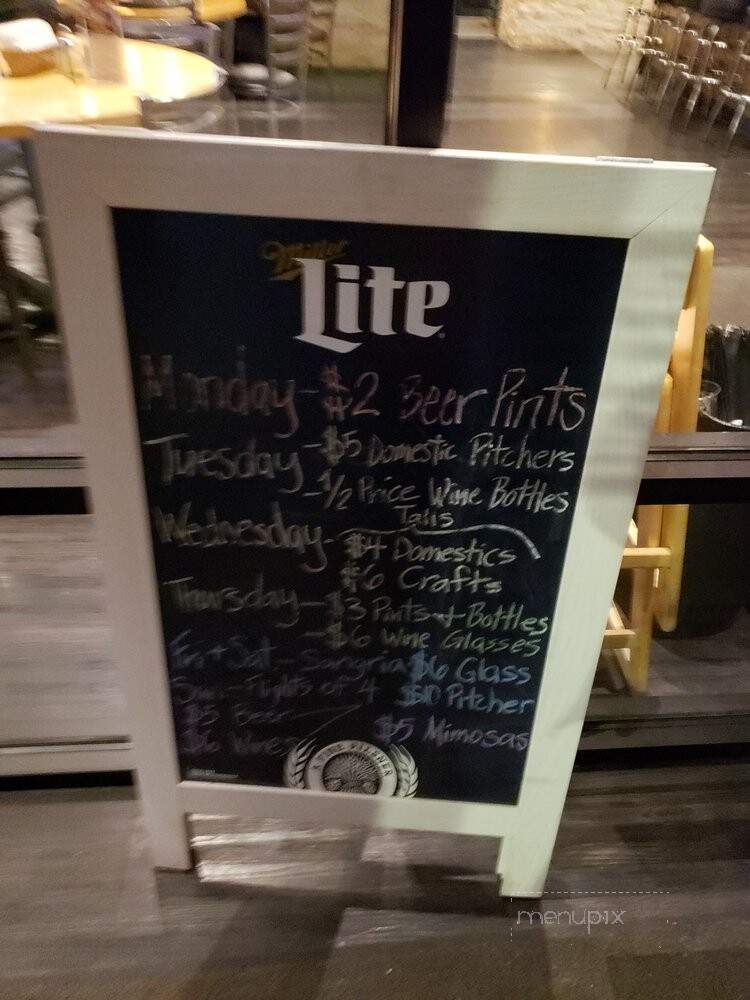 Miller
Lite
Monday - $2 Beer Pints
Tuesday - $5 Domestic Pitchers
- 1/2 Price Wine Bottles
Talls
Wednesday - $4 Domestics
$6 Crafts
Thursday - $3 Pints + Bottles
- $6 Wine Glasses
Fri + Sat - Sangria $6 Glass
$10 Pitcher
Sun - Flights of 4
$5 Beer
$6 Wines
$5 Mimosas
A FINE PILSNER
menupix